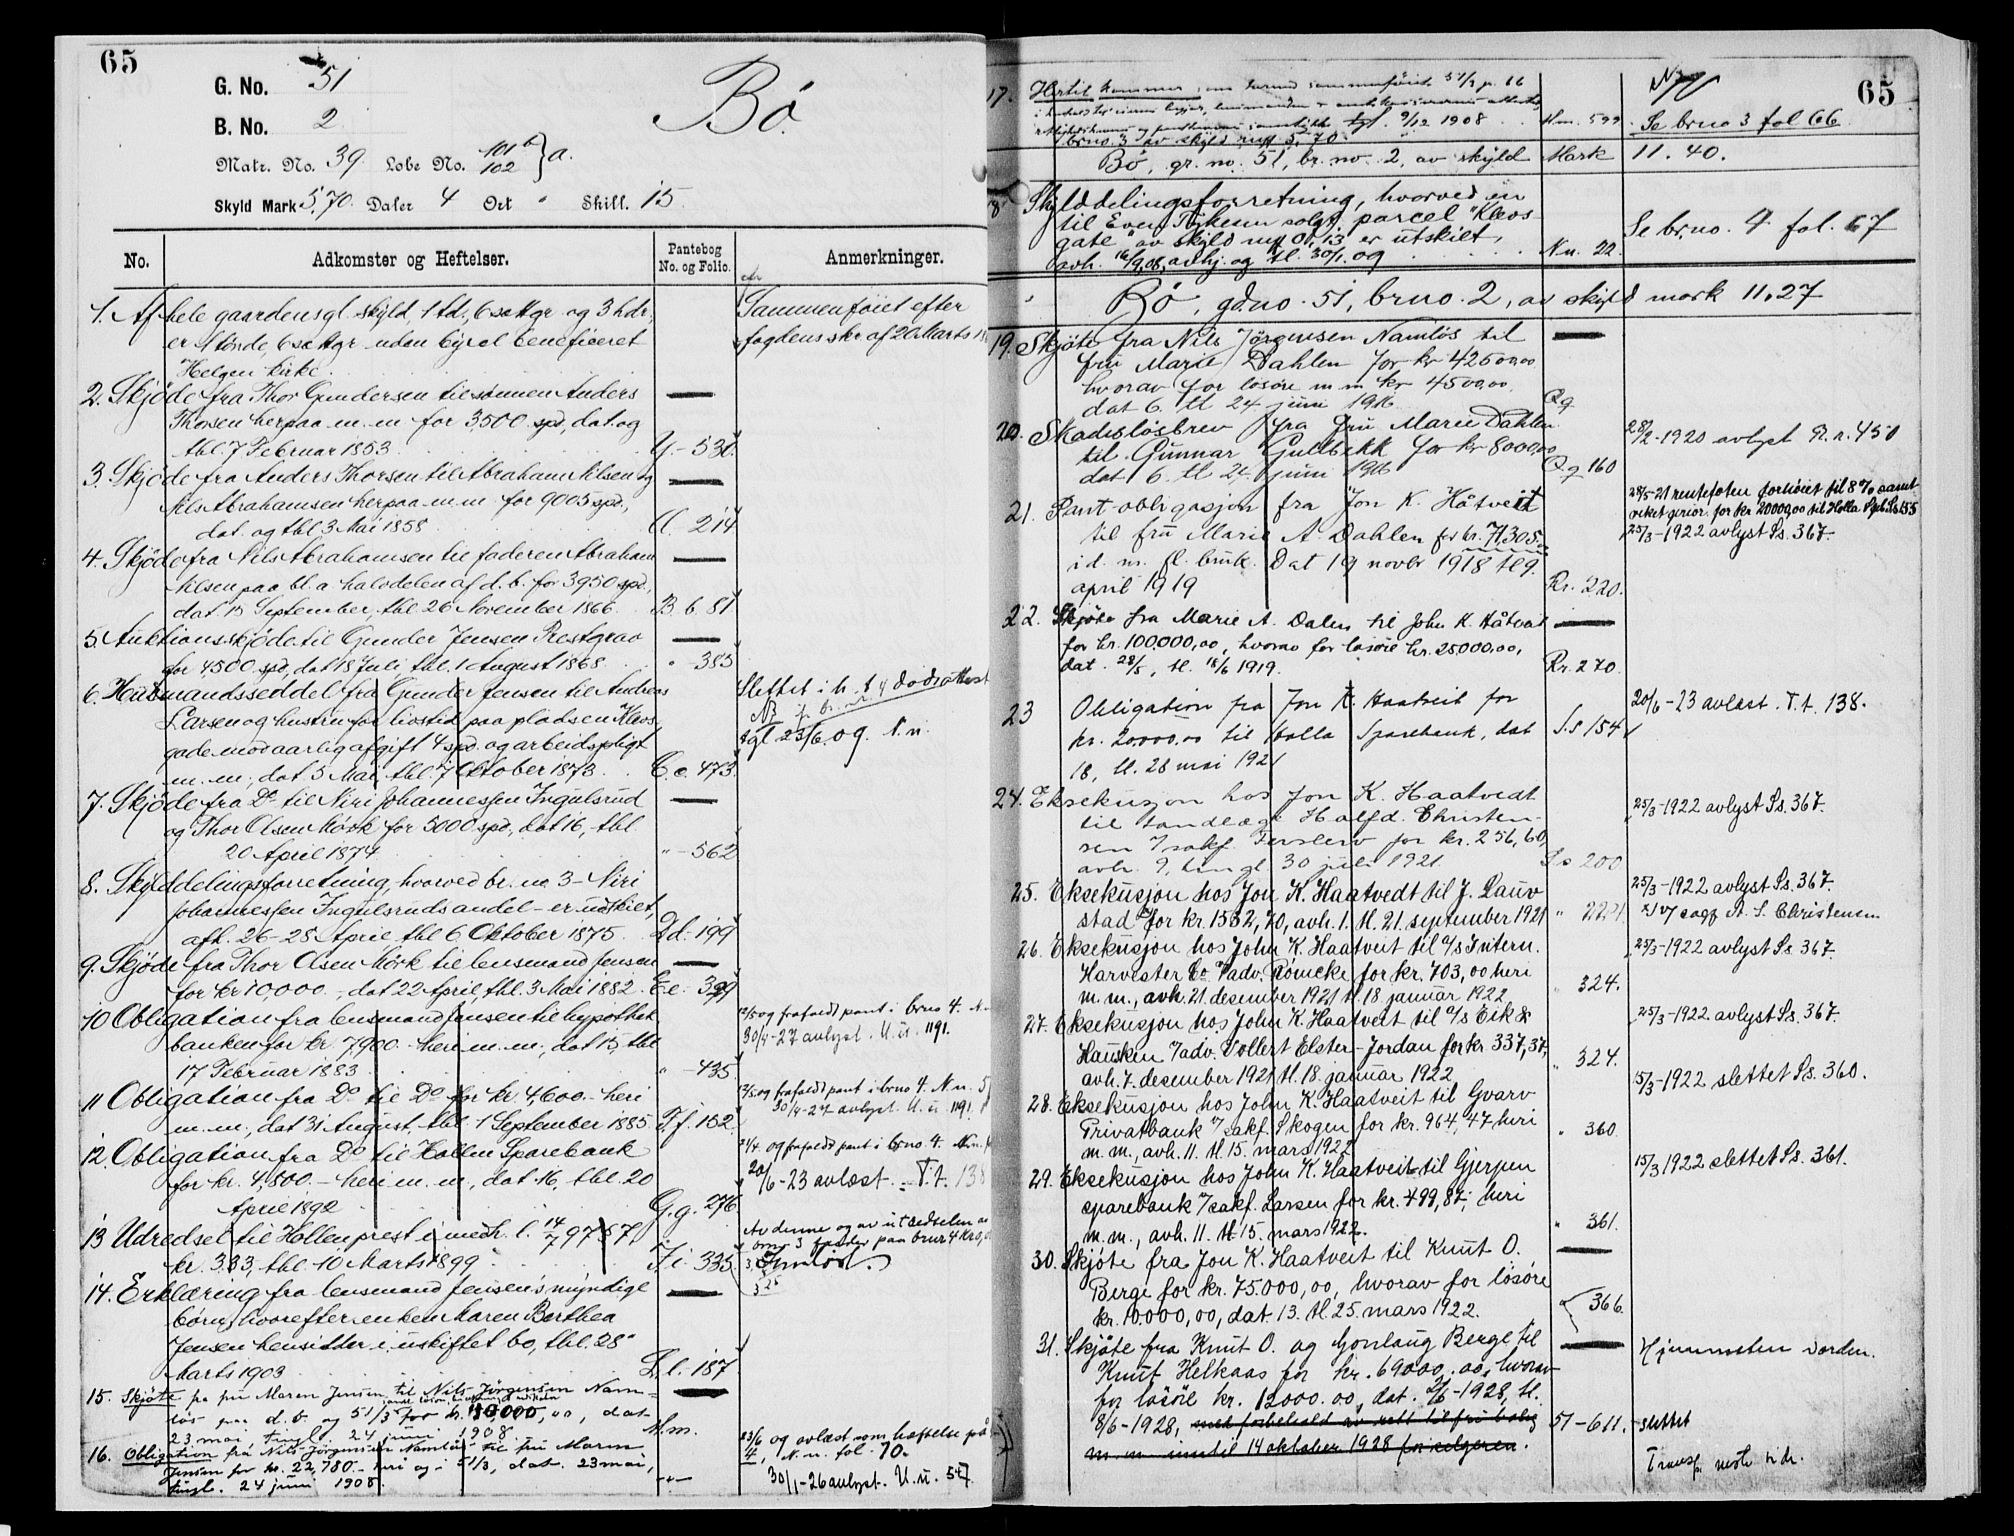 65
G. No. 51
B. No. 2
Bö.
Matr. No. 39. Løbe No. 101 b 102 } a.
Skyld Mark 5,70. Daler 4 Ort " Skill. 15.
No. Adkomster og Heftelser. Pantebog No. og Folio. Anmerkninger.
1. Af hele gaardens gl. skyld 1 td., 6 sættgr. og 3 hdr,
er 1 tønde, 6 sættgr. uden bygsel beneficeret
Helgen kirke.
Sammenføiet efter
fogdens skr af 20 Marts
2. Skjøde fra Thor Gundersen til sønnen Anders
Thorsen herpaa m. m for 3,500 spd, dat. og
tbl. 7 Februar 1853 Y. - 530.
3. Skjøde fra Anders Thorsen til Abraham Nilsen og
Nils Abrahamsen herpaa m. m. for 9005 spd.,
dat. og tbl 3 Mai 1858 A. - 214
4. Skjøde fra Nils Abrahamsen til faderen Abraham
Nilsen paa bl. a halvdelen af d. b. for 3950 spd.,
dat. 15 September, tbl. 26 November 1866. B b. 81
5. Auktionsskjøde til Gunder Jensen Prestgrav
for 4,500 spd., dat 18 Juli, tbl. 1 August 1868. " - 385
6. Husmandsseddel fra Gunder Jensen til Andreas
Larsen og hustru for livstid paa pladsen Kleos-
gade mod aarlig afgift 4 spd. og arbeidspligt
m. m., dat. 5 Mai, tbl. 7 Oktober 1873. C. c. 473.
Slettet i h. t. dødsattest
tgl 23/6 09. N. n.
7. Skjøde fra Do til Niri Johannessen Ingulsrud
og Thor Olsen Mørk for 5000 spd., dat 16., tbl
20 April 1874. " - 562
8. Skylddelingsforretning, hvorved br. no 3 - Niri
Johannessen Ingulsruds andel - er udskilt,
afh. 26-28 April, tbl 6 Oktober 1875. D d. 199
9. Skjøde fra Thor Olsen Mørk til lensmand Jensen
for kr 10,000. -, dat 22 April, tbl. 3 Mai 1882. E e. 399
10 Obligation fra lensmand Jensen til hypothek-
banken for kr 7900. - heri m. m., dat 15, tbl
17 Februar 1883. " - 435
12/5 09 frafaldt pant i brno 4. N. n.
30/4-27 avlyst. U. u. 1191.
11 Obligation fra Do til Do for kr. 4,600. - heri
m. m., dat 31 August, tbl. 1 September 1885. F. f. 152
12/5 09 frafaldt pant i brno 4. N. n. 5
30/4-27 avlyst. U. u. 1191
12. Obligation fra Do til Hollen Sparebank
for kr. 4,800. - heri m. m., dat 16, tbl. 20
April 1892 G. g. 276
21/4 09 frafaldt pant i brno 4. N. n.
20/6-23 avlæst. T. t. 138
13 Udredsel til Hollen prest i medh. l. 14/7 97 § 7,
kr. 3.33, tbl. 10 Marts 1899. I i 335
Av denne og av utredselen
3 paa brno 4 kr.
Indløst.
14. Erklæring fra lensmand Jensens myndige
børn, hvorefter enken Maren Berthea
Jensen hensidder i uskiftet bo, tbl. 28
Marts 1903 L. l. 187
15. Skjøte fra fru Maren Jensen til Nils Jörgensen Nam-
lös paa d. b. og 51/3 for kr. 30,000,00, dat
23 mai, tingl. 24 juni 1908 M. m.
16. Obligation fra Nils Jörgensen Namlös til fru Maren
Jensen for kr. 22,780. - heri og i 51/3, dat. 23 mai,
tingl. 24 juni 1908. - " -
23/6 09 avlæst som heftelse på
4, N. n. fol. 70.
30/1-26 avlyst. U. u. 547
65
17. Hertil kommer som hermed sammenføiet 51/3 p. 66
tgl. 9/12 1908 M m. 599 Se brno 3 fol 66
brno. 3 av skyld mrk 5,70.
Bö, gr. no. 51, br. no. 2, av skyld Mark 11.40.
18 Skylddelingsforretning, hvorved en
til Even Tykesen solgt parcel "Kleos-
gate" av skyld mrk 0,13 er utskilt,
avh. 16/9 08, avhj. og tl. 30/1. 09 N n. 22.
Se br. no. 4 fol. 67
Bö, gd.no. 51, brno. 2, av skyld mark 11.27
19. Skjöte fra Nils Jörgensen Namlös til
fru Marie Dahlen for kr 42500,00
hvorav for lösöre m m kr 4500,00.
dat 6. tl 24 juni 1916 Q q
20. Skadeslösbrev fra fru Marie Dahlen
til Gunnar Gulbekk for kr 8000,00
dat 6. tl 24 juni 1916 Q q 160
28/2-1920 avlyst R. r. 450
21. Pant obligasjon fra Jon K. Håtveit
til fru Marie A Dahlen for kr. 71,305
i d. m. fl. bruk. Dat 19 novbr 1918 tl 9.
april 1919 Rr. 220.
28/5-21 rentefoten forhöiet til 8% samt
veket prior. for kr 20000,00 til Holla Spb. Ss 155
25/3-1922 avlyst Ss. 367.
22. Skjöte fra Marie A. Dalen til John K. Håtveit
for kr. 100,000,00, hvorav for lösöre kr. 25000,00,
dat. 28/5, tl. 16/6 1919. Rr. 270.
23 Obligation fra Jon K. Haatveit for
kr. 20,000,00 til Holla Sparebank, dat
18, tl. 28 mai 1921 S.s 154
20/6-23 avlæst. T. t. 138.
24. Eksekusjon hos Jon K. Haatvedt
til tandlæge Halfd. Christen-
sen v/sakf. Terslev for kr. 256,60,
avh. 9, tingl 30 juli 1921. S s 200
25/3-1922 avlyst Ss. 367.
25. Eksekusjon hos Jon K. Haatvedt til J. Dauv
stad for kr. 1532,70, avh. 1. tl. 21. september 1921 " 222.
25/3-1922 avlyst Ss. 367.
v/ sagf A. S. Christensen
26. Eksekusjon hos John K. Haatveit til A/s Intern.
Harvester Co v/adv. Rönneke for kr. 703,00 heri
m. m., avh. 21. desember 1921 tl. 18. januar 1922 " 324.
25/3-1922 avlyst Ss. 367.
27. Eksekusjon hos John K. Haatveit til A/s Eik &
Hausken v/adv. Vollert Elster-Jordan for kr. 337,37,
avh. 7. desember 1921 tl. 18. januar 1922 " 324.
25/3-1922 avlyst Ss. 367.
28. Eksekusjon hos John K. Haatveit til Gvarv
Privatbank v/sakf. Skogen for kr. 964,47 heri
m. m., avh. 11. tl. 15. mars 1922 " 360.
15/3-1922 slettet Ss. 360.
29. Eksekusjon hos John K. Haatveit til Gjerpen
sparebank v/sakf. Larsen for kr. 499,87, heri
m. m., avh. 11. tl 15. mars 1922. " 361.
15/3 1922 slettet Ss. 361.
30. Skjöte fra Jon K. Haatveit til Knut O.
Berge for kr. 75.000,00, hvorav for lösöre
kr. 10.000,00, dat. 13. tl 25 mars 1922. " 366.
31. Skjöte fra Knut O. og Gonlaug Berge til
Knut Helkaas for kr. 69000.00, hvorav
for lösöre kr. 12000.00, dat. 2/6-1928, tl.
8/6-1928, med forbehold av rett til fri bolig
m. m inntil 14 oktober 1928 for selgeren. 57-611.
Hjemmelen vorden.
slettet
Transp. neste side.